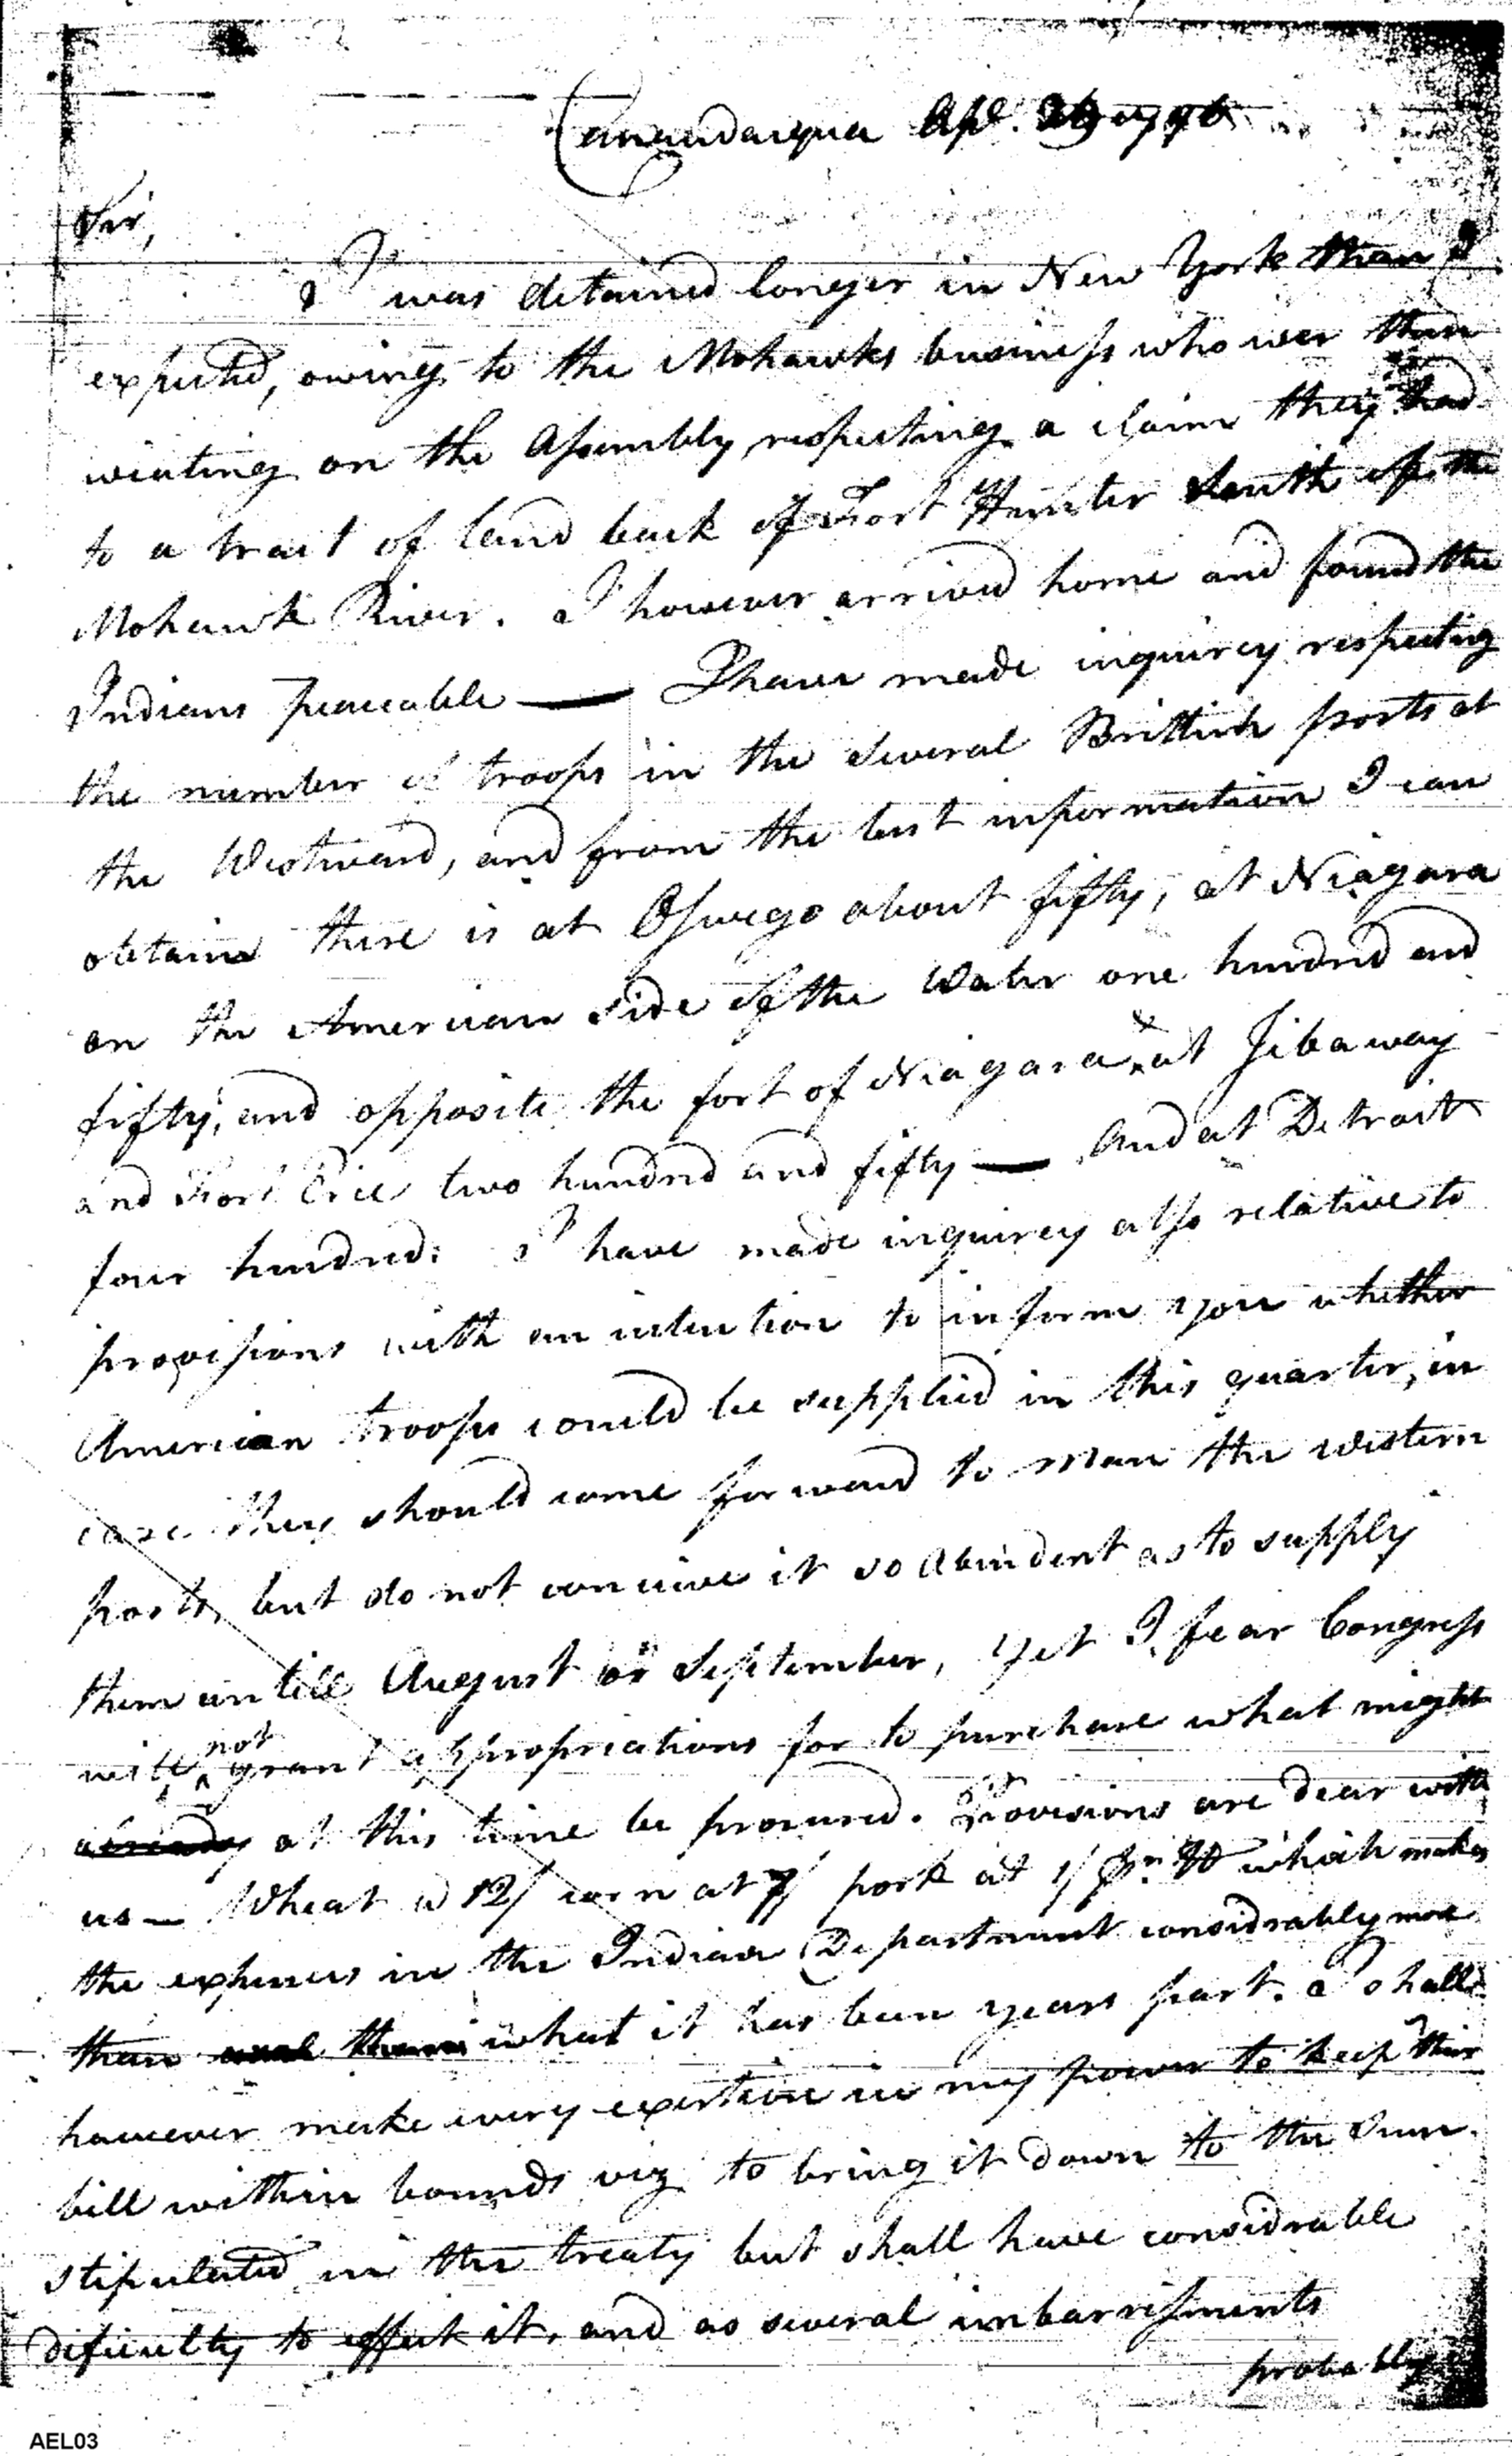 Canandarqua Apl. 29 1796
Sir,
I was detained longer in New York than I
expected, owing to the Mohawks business who wer then
wiating on the Assembly respecting a claim they had
to a tract of land back of Fort Hunter South of the
Mohawk River. I however arrived home and found the
Indians peaceable — I have made inquirey respecting
the number of troops in the several Brittish posts at
the Westward, and from the best information I can
obtaind there is at Oswego about fifty, at Niagara
on the American side of the Water one hundred and
fifty, and opposite the fort of Niagara, & at Jibaway
and Fort Erie two hundred and fifty — And at Detroit
four hundred: I have made inquirey also relative to
provisions with an intention to inform you whether
American troops could be supplied in this quarter, in
case they should come forward to man the western
posts, but do not conceive it so abundent as to supply
them untill August or September, yet I fear Congress
will not grant appropriations for to purchase what might
already at this time be procured. Provisions are dear with
us — Wheat @ 12/ corn at 7/ pork at 1/ pr. lb which makes
the expences in the Indian Department considrably more
than what it has been years past. I shall
however make every exertion in my power to keep this
bill within bounds viz to bring it down to the Sum
stipulated in the treaty but shall have considrable
dificulty to effect it, and as several imbarrissments
probably
AEL03